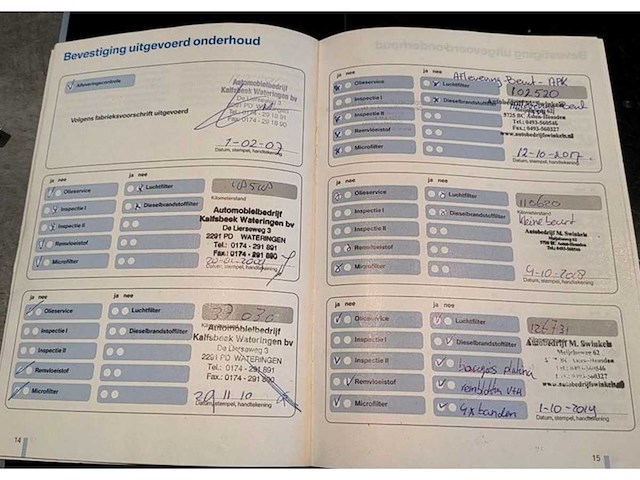 Bevestiging uitgevoerd onderhoud
Afleveringscontrole
Volgens fabrieksvoorschrift uitgevoerd
Automobielbedrijf
Kalfsbeek Wateringen bv
De Lierseweg 3
2291 PD
1-02-07
Datum, stempel, handtekening
ja nee
Olieservice Luchtfilter
Inspectie I Dieselbrandstoffilter
Inspectie II
Remvloeistof
Microfilter
Kilometerstand
Automobielbedrijf
Kalfsbeek Wateringen bv
De Lierseweg 3
2291 PD WATERINGEN
Tel.: 0174 - 291 891
Fax.: 0174 - 291 890
Datum, stempel, handtekening
ja nee
Olieservice Luchtfilter
Inspectie I Dieselbrandstoffilter
Inspectie II
Remvloeistof
Microfilter
Automobielbedrijf
Kalfsbeek Wateringen bv
De Lierseweg 3
2291 PD WATERINGEN
Tel.: 0174 - 291 891
Fax.: 0174 - 291 890
20 11 10
Datum, stempel, handtekening
14
ja nee
Olieservice Luchtfilter
Inspectie I Dieselbrandstoffilter
Inspectie II
Remvloeistof
Microfilter
Aflevering Beurt - APK
102520
Autobedrijf M. Swinkels
5725 BC Asten-Heusden
Tel.: 0493-560546
Fax.: 0493-560327
www.autobedrijfswinkels.nl
12-10-2017
Datum, stempel, handtekening
ja nee
Olieservice Luchtfilter
Inspectie I Dieselbrandstoffilter
Inspectie II
Remvloeistof
Microfilter
110620
Kilometerstand
kleine beurt
Autobedrijf M. Swinkels
Meijelseweg 62
5725 BC Asten-Heusden
9-10-2018
Datum, stempel, handtekening
ja nee
Olieservice Luchtfilter
Inspectie I Dieselbrandstoffilter
Inspectie II bougies platina
Remvloeistof remblokken V+A
Microfilter 4x banden
126731
Autobedrijf M. Swinkels
Meijelseweg 62
5725 BC Asten-Heusden
Tel.: 0493-560546
Fax.: 0493-560327
www.autobedrijfswinkels.nl
1-10-2019
Datum, stempel, handtekening
15